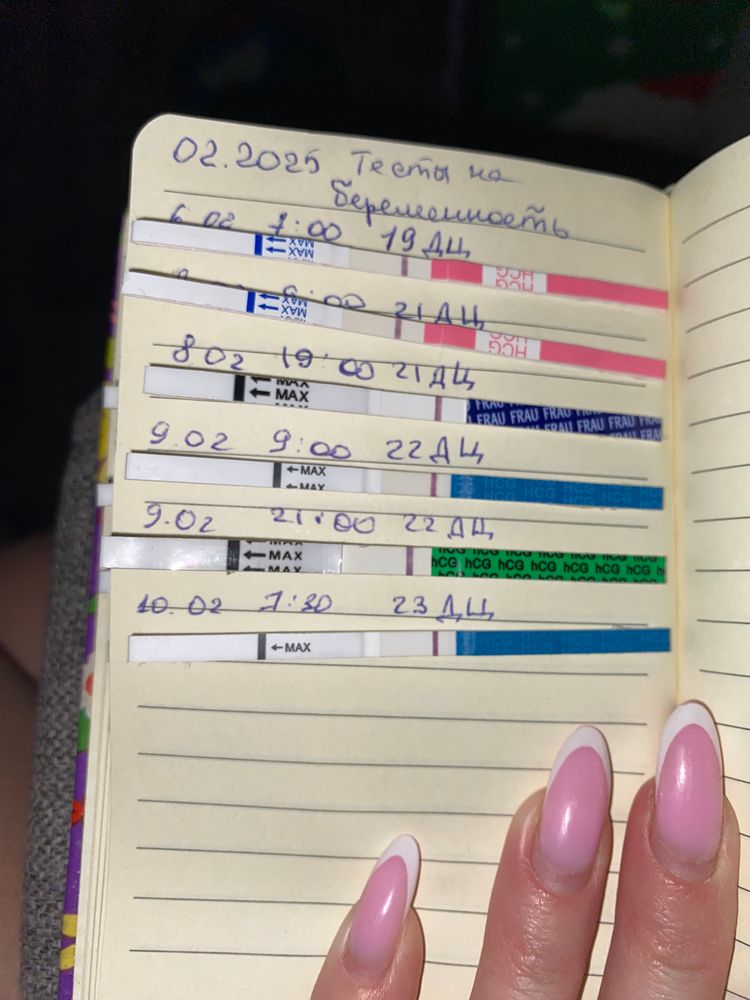 02.2025 Тесты на
беременность
6.02 7:00 19 ДЦ
MAX
MAX
HCG
HCG
6:00 21 ДЦ
MAX
MAX
HCG
HCG
8.02 19:00 21 ДЦ
MAX
MAX
FRAU FRAU FRAU FRAU
FRAU FRAU FRAU FRAU FRAU
9.02 9:00 22 ДЦ
MAX
MAX
HCG HCG HCG HCG HCG
9.02 21:00 22 ДЦ
MAX
MAX
hCG hCG hCG hCG hCG
hCG hCG hCG hCG hCG hCG
10.02 7:30 23 ДЦ
MAX